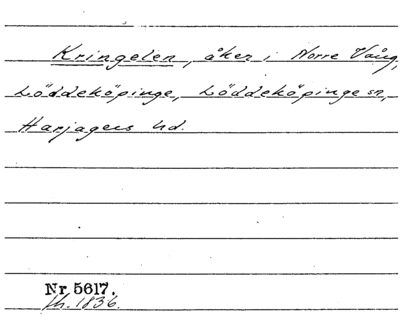 Kringelen, åker i Norre Vång,
Löddeköpinge, Löddeköpinge sn,
Harjagers hd.
Nr 5617.
fh. 1836.